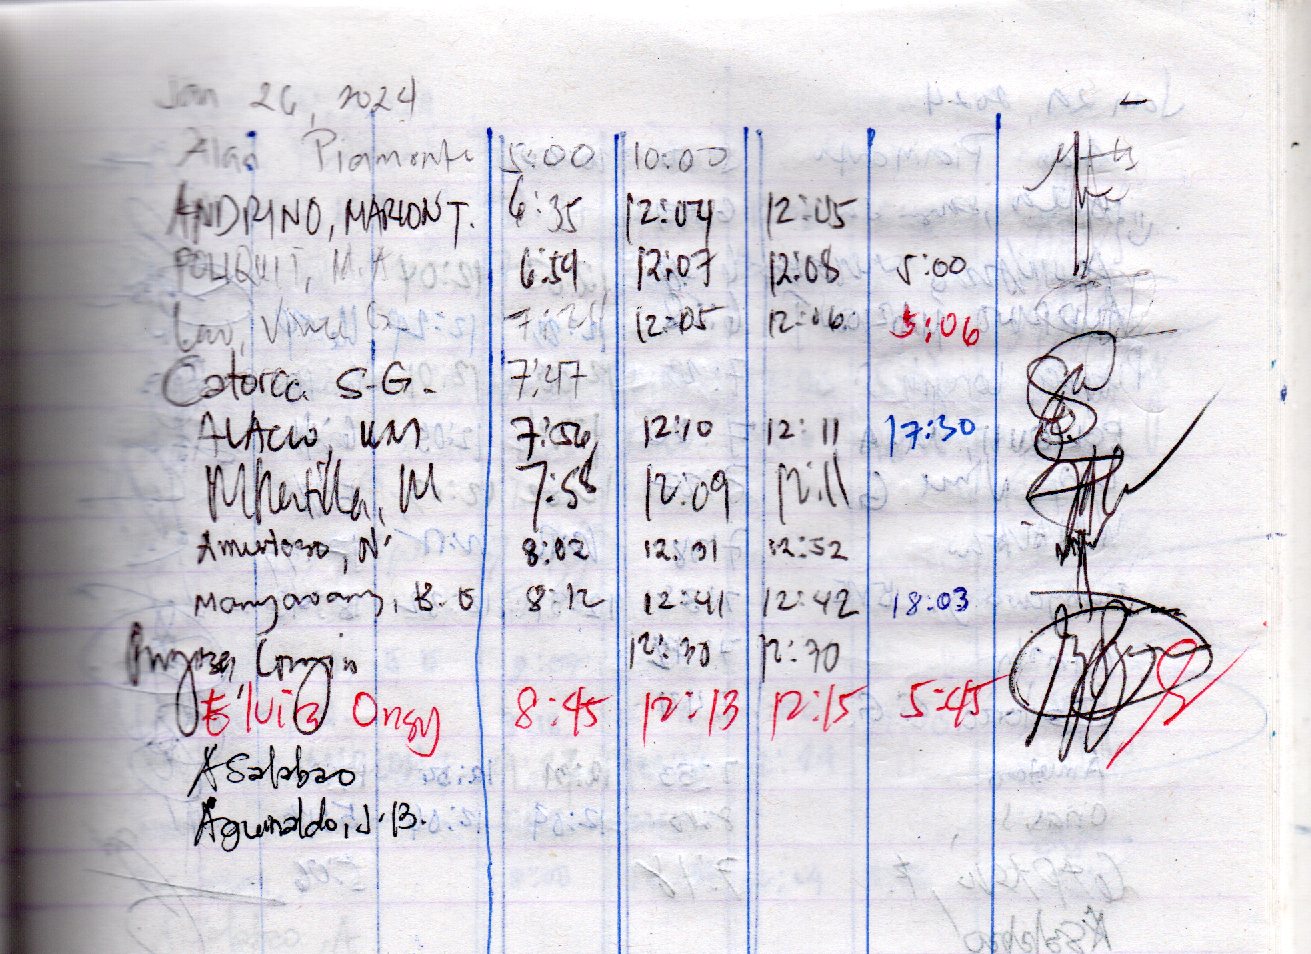 Jan 26, 2024
Alan Piamonte 5:00 10:00
ANDRINO, MARION T. 6:35 12:04 12:05
POUQUIT, M.A 6:59 12:07 12:08 5:00
Lao, Vince G 12:05 12:06 5:06
Catorce S.G. 7:47
ALACIO, KM 7:56 12:10 12:11 17:30
M 7:58 12:09 12:11
Amistoso, N 8:02 12:31 12:52
8:12 12:41 12:42 18:03
12:30 12:30
Elvie Ongy 8:45 12:13 12:15 5:45
A Salabao
Aguinaldo, J.B.